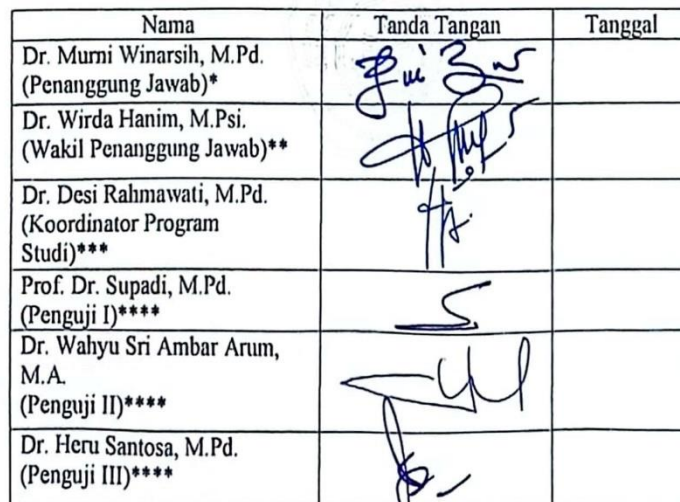 Nama Tanda Tangan Tanggal
Dr. Murni Winarsih, M.Pd.
(Penanggung Jawab)*
Dr. Wirda Hanim, M.Psi.
(Wakil Penanggung Jawab)**
Dr. Desi Rahmawati, M.Pd.
(Koordinator Program
Studi)***
Prof. Dr. Supadi, M.Pd.
(Penguji I)****
Dr. Wahyu Sri Ambar Arum,
M.A.
(Penguji II)****
Dr. Heru Santosa, M.Pd.
(Penguji III)****